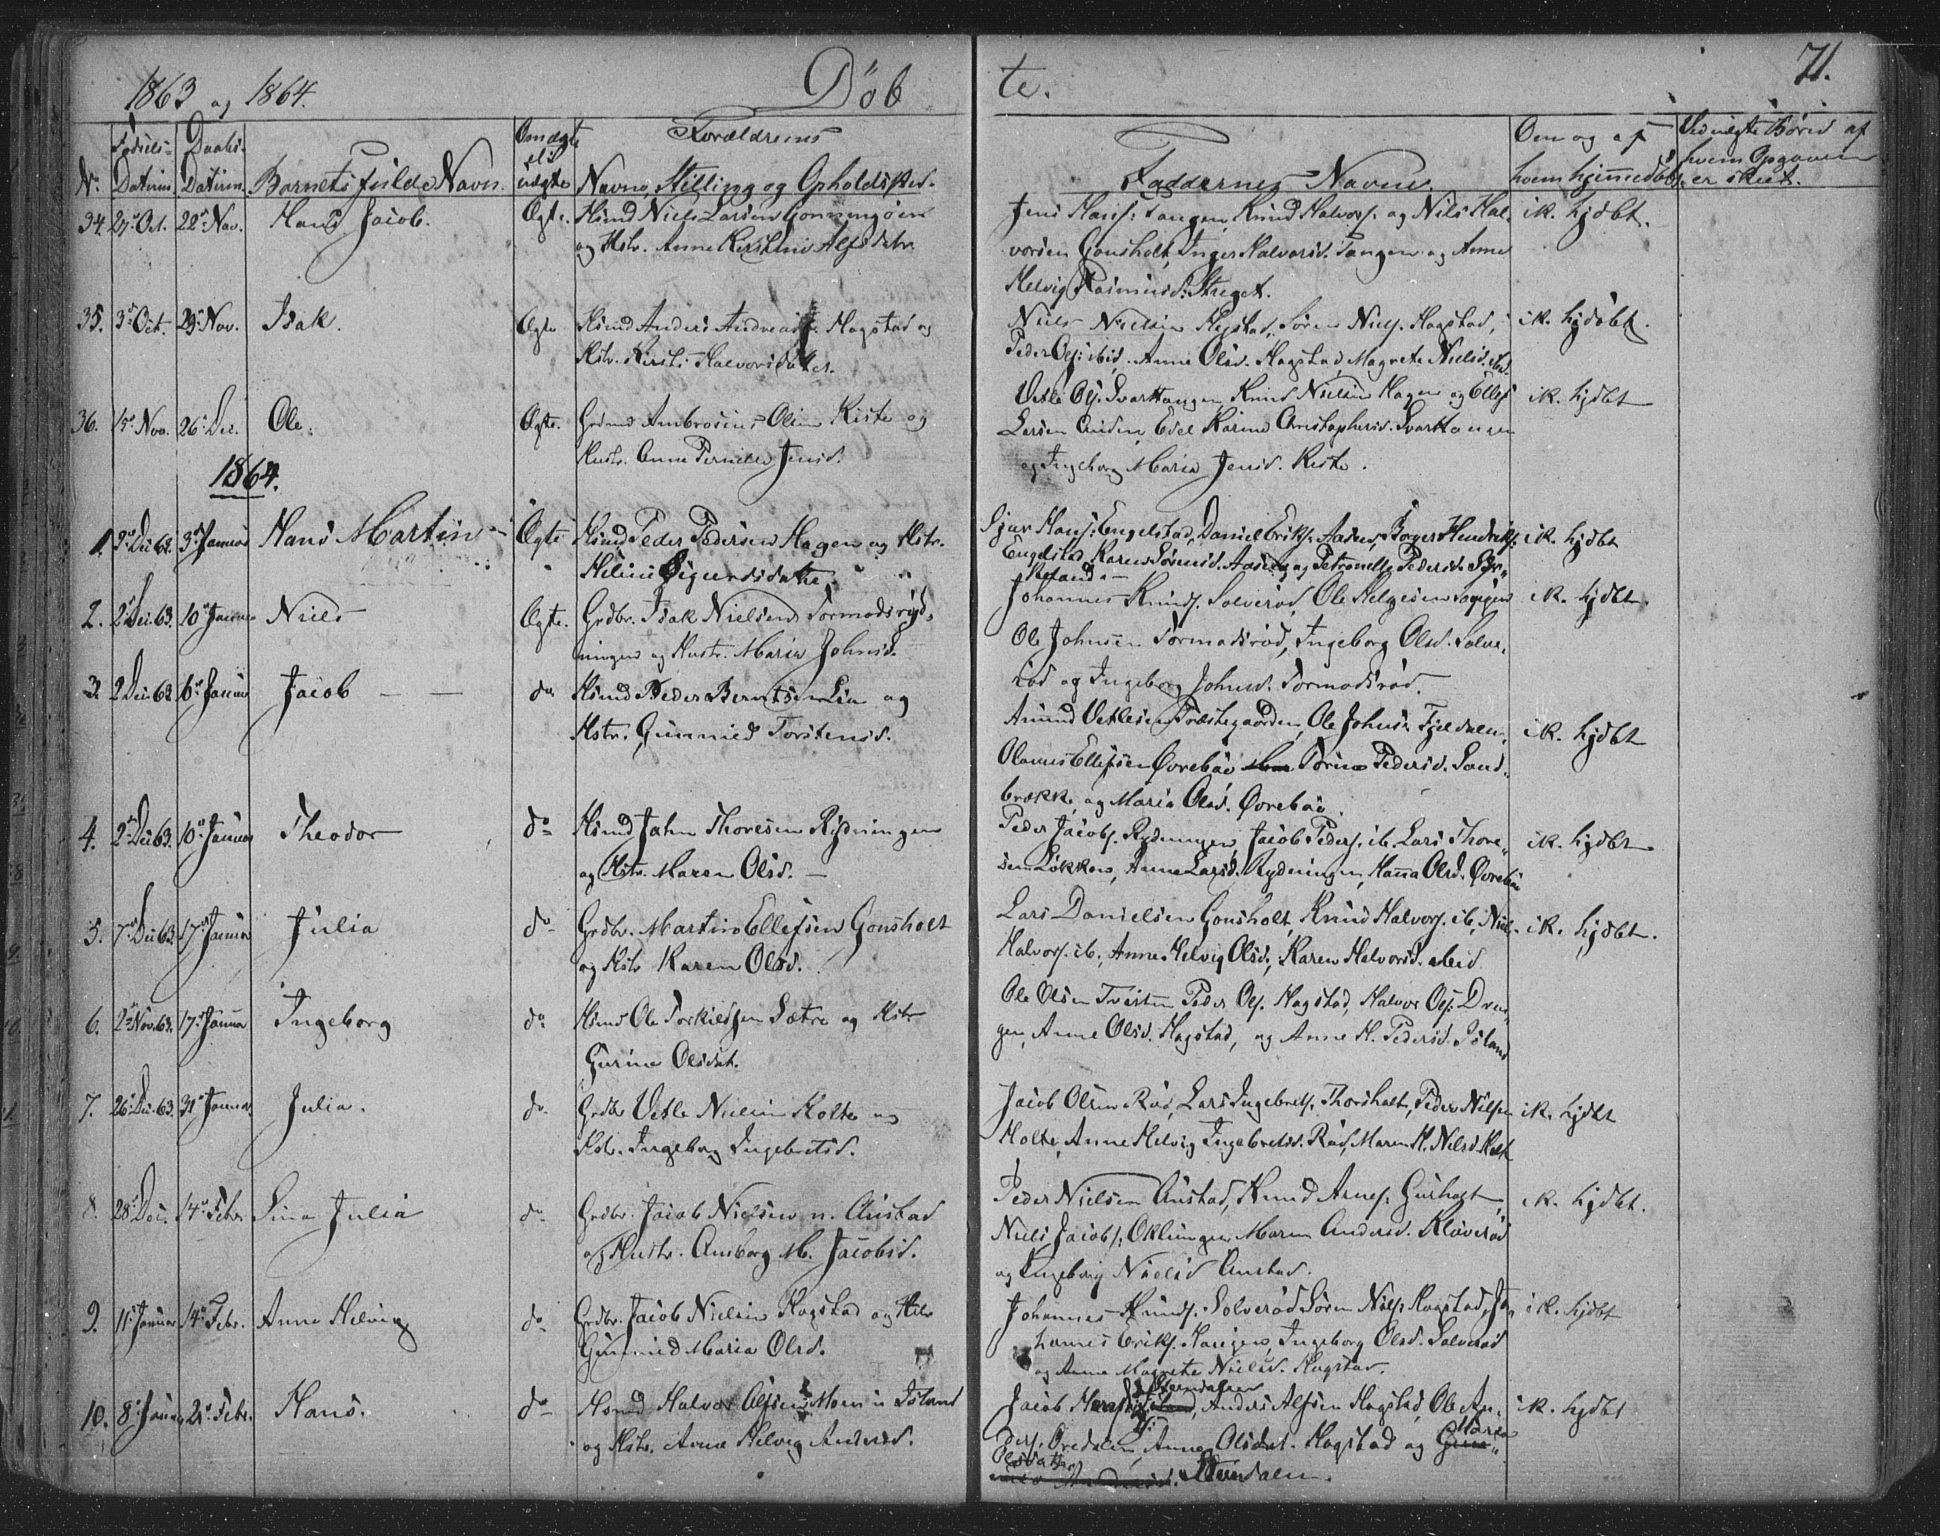 1863 og 1864.
Döb
te.
71.
No
Födsels-
Datum.
Daabs-
Datum.
Barnets fulde Navn.
Om ægte
el.
uægte
Forældrenes
Navne, Stilling og Opholdsted.
Faddernes Navne.
Om og af
hvem hjemmedöbt.
Ved uægte Börn af
hvem Opgaven
er skeet.
34. 27de Oct. 22de Nov. Hans Jacob. Ægte. Hsmd Niels Larsen
og Hstr. Anne Kirstine Alfsdatr.
Jens Hansf: Tangen, Knud Halvorsf. og Nils Hal-
vorsen Gonsholt, Inger Halvorsd. Tangen og Anne
Helvig Rasmusd: Streget.
ik. hjdbt.
35. 3de Oct. 29de Nov. Isak. Ægte Hsmd Anders Andreasf. Hagstad og
Hstr. Kirsti Halvorsdatter.
Niels Nielsen Hagstad, Sören Nielsf. Hagstad,
Peder Olsf: ibid. Anne Olsd. Hagstad, Magrete Nielsd. ibid.
ik. hjdöbt.
36. 15de Nov. 26de Dec. Ole. Ægte. Grdmd Ambrosius Olsen Kiste og
Hustr. Anne Pernille Jensd.
Vetle Olsf. Svarttangen Knud Nielsen Hagen og Ellef
Larsen Edel Karine Christophersd. Svarttangen
og Ingeborg Maria Jensd. Kiste.
ik. hjdbt
1864.
1. 3de Januar Hans Martin Ægte Hsmd Peder Pedersen Hagen og Hstr.
Heline Sigurdsdatter.
Sjur Hansf: Engelstad, Daniel Eriksf. Aasen, Borger Hendriksf:
Engelstad, Karen Sörensd. Aasen, og Petronelle Pedersd.
ik. hjdbt
2. 2de Dec. 63. 10de Januar Niels Ægte. Grdbr. Isak Nielsen Tormodsröd-
ningen og Hustr. Maria Johnsd.
Johannes Knudsf. Solveröd, Ole Helgesen
Ole Johnsen Tormodsröd, Ingeborg Olsd. Solve-
röd og Ingeborg Johnsd. Tormodsröd.
ik. hjdbt.
3. 2 Dec 63 6te Januar Jacob do Hsmd Peder Berntsen Lia og
Hstr. Gunnild Torstensd.
Amund Vetlesen Præstegaarden, Ole Johnsen Fjeldalen,
Olaves Ellefsen Övreböe Torine Pedersd. Sand-
brække, og Maria Olsd. Övreböe.
ik. hjdbt
4. 2de Dec 63. 10de Januar Theodor do Hsmd John Thoresen Rydningen
og Hstr. Maren Olsd.
Peder Jacobsf. Rydningen, Jacob Pedersf. ib. Lars Thore-
sen Lökken, Anne Larsd. Rydningen, Hanna Olsd. Övreböe
ik. hjdbt
5. 7de Dec 63. 17de Januar Julia do Grdbr. Martin Ellefsen Gonsholt
og Hstr Karen Olsd.
Lars Danielsen Gonsholt, Knud Halvorsf. ib, Niels
Halvorsf. ib., Anne Helvig Olsd., Karen Halvorsd. ibid
ik. hjdbt.
6. 2de Nov. 63. 17de Januar Ingeborg do Hsmd Ole Torkildsen Sætre og Hstr
Gurine Olsdat.
Ole Olsen Tveiten Peder Olsf. Hagstad, Halvor Olsf: Dran-
gen, Anne Olsd. Hagstad, og Anne H. Pedersd. Island
7. 26de Dec. 63. 31te Januar. Julia. do. Grdbr Vetle Nielsen Holte og
Hstr. Ingeborg Ingebretsd.
Jacob Olsen Röd, Lars Ingebretsf. Thorsholt, Peder Nilsen
Holte, Anne Helvig Ingebretsd. Röd, Maren H. Nilsd Holte
ik. hjdbt
8. 28de Dec. 14de Febr Lina Julia do Grdbr. Jacob Nielsen n. Austad
og Hustr. Aasborg M. Jacobsd.
Peder Nielsen Austad, Knud Arnesf. Gurholt,
Niels Jacobsf: Oklungen Maren Andersd. Klöveröd
og Ingeborg Nielsd Austad.
ik. hjdbt.
9. 11te Januar 14de Febr. Anne Helvig do Grdbr. Jacob Nielsen Hagstad og Hstr
Gunnild Maria Olsd.
Johannes Knudsf. Solveröd Sören Nilsf. Hagstad, Jo-
hannes Eriksf. Haugen, Ingeborg Olsd. Solveröd
og Anne Magrete Nielsd. Hagstad.
ik. hjdbt
10. 8de Januar 21de Febr. Hans. do Hsmd Halvor Alfsen Moen u. Island
og Hstr. Anne Helvig Andersd.
Jacob Stensdalen, Anders Alfsen Hagstad, Ole An-
dersf. Öredalen, Anne Olsdat. Hagstad og Maren
Olsdatter Stensdalen.
ik. hjdbt